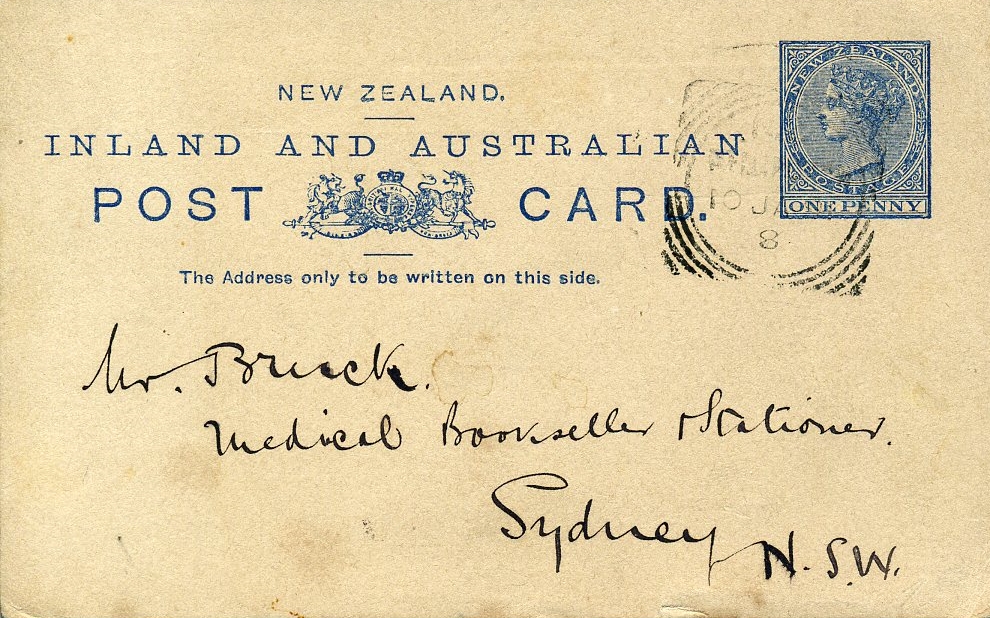 NEW ZEALAND.
INLAND AND AUSTRALIAN
POST CARD.
The Address only to be written on this side.
NEW ZEALAND
POSTAGE
ONE PENNY
10 JA
8
Mr. Bruck.
Medical Bookseller & Stationer.
Sydney
N.S.W.